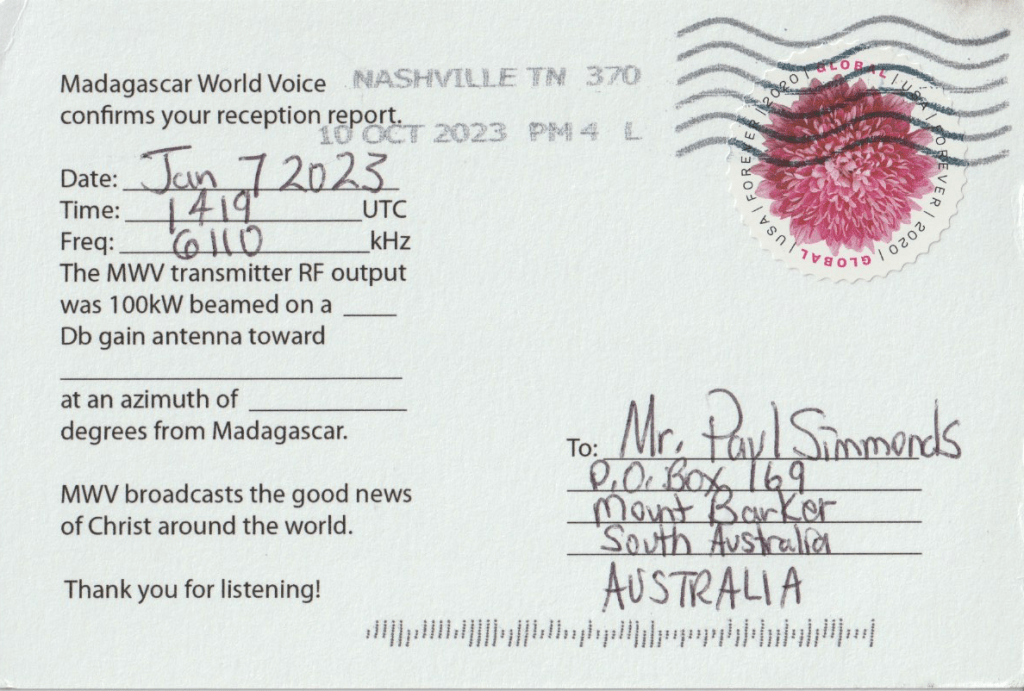 Madagascar World Voice
confirms your reception report.
NASHVILLE TN 370
10 OCT 2023 PM 4 L
GLOBAL | USA | FOREVER | 2020 | GLOBAL | USA | FOREVER | 2020 |
Date: Jan 7 2023
Time: 1419 UTC
Freq: 6110 kHz
The MWV transmitter RF output
was 100kW beamed on a ____
Db gain antenna toward
at an azimuth of ____
degrees from Madagascar.
MWV broadcasts the good news
of Christ around the world.
Thank you for listening!
To: Mr. Paul Simmonds
P.O. Box 169
Mount Barker
South Australia
AUSTRALIA